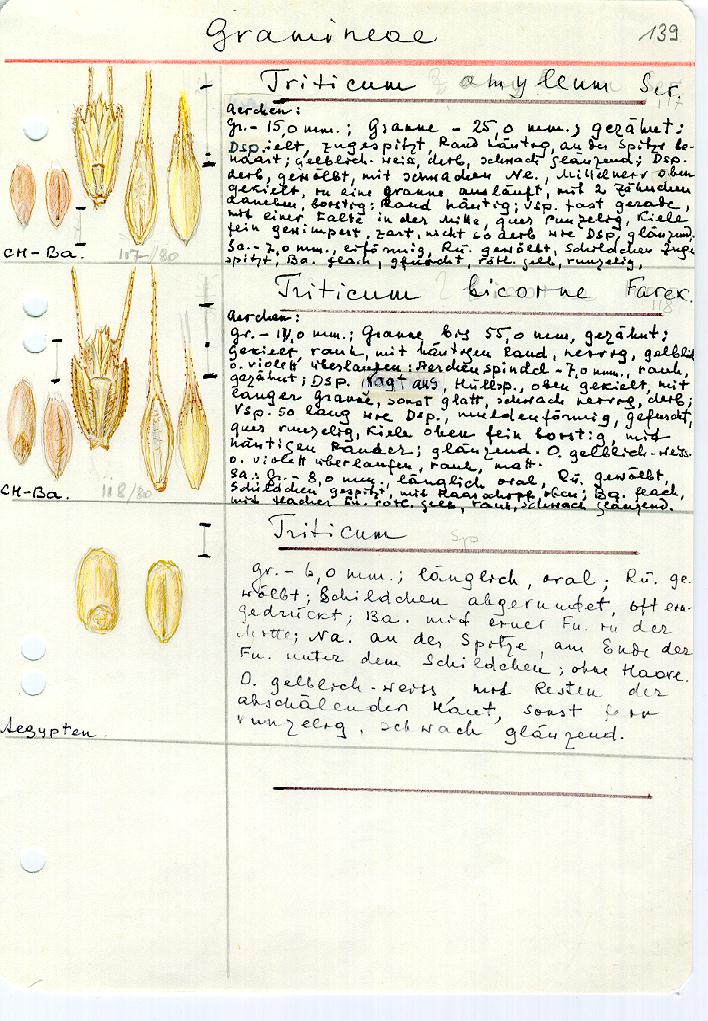 Gramineae
139
Triticum amyleum Ser.
Aerchen:
Gr. - 15,0 mm.; Granne - 25,0 mm.; gezähnt;
Dsp. ielt, zugespitzt, Rand häutig, an der Spitze be-
haart; gelblich-weiss, derb, schwach glänzend; Dsp.
derb, gewölbt, mit schwachen Ne., Mittelnerv oben
gekielt, in eine Granne ausläuft, mit 2 Zähnchen
daneben, borstig; Rand häutig; Vsp. fast gerade,
mit einer Falte in der Mitte, quer runzelig, Kiele
fein gewimpert, zart, nicht so derb wie Dsp., glänzend.
Sa. - 7,0 mm., eiförmig, Rü. gewölbt, Schildchen zuge-
spitzt; Ba. flach, gefurcht, rötl. gelb, runzelig,
CH-Ba.
117/80
Triticum bicorne Forsk.
Aerchen:
gr. - 14,0 mm.; Granne bis 55,0 mm, gezähnt;
gekielt, rauh, mit häutigen Rand, nervig, gelblich
o. violett überlaufen; Aerchenspindel - 7,0 mm., rauh,
gezähnt; DSp. ragt aus Hüllsp., oben gekielt, mit
langer Granne, sonst glatt, schwach nervig, derb;
Vsp. so lang wie Dsp., muldenförmig, gefurcht,
quer runzelig, Kiele oben fein borstig, mit
häutigen Ränder; glänzend. O. gelblich-weiss
o. violett überlaufen, rauh, matt.
Sa.: Gr. - 8,0 mm.; länglich oval, Rü. gewölbt,
Schildchen gespitzt, mit Haarschopf oben; Ba. flach,
mit flacher Fu. rötl. gelb, rauh, schwach glänzend.
CH-Ba.
118/80
Triticum sp
gr. - 6,0 mm.; länglich, oval; Rü. ge-
wölbt; Schildchen abgerundet, oft ein-
gedrückt; Ba. mit einer Fu. in der
Mitte; Na. an der Spitze, am Ende der
Fu. unter dem Schildchen; ohne Haare.
O. gelblich-weiss, mit Resten der
abschälenden Haut, sonst fein
runzelig, schwach glänzend.
Aegypten